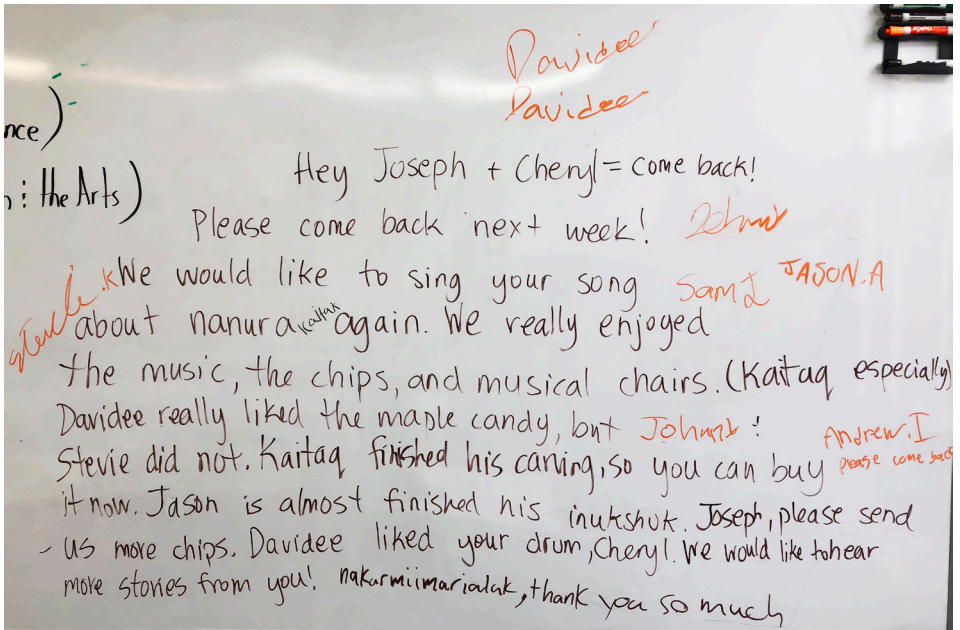 Davidee
Davidee
nce)
n : the Arts)
Hey Joseph + Cheryl = come back!
Please come back next week!
We would like to sing your song
Sam I JASON.A
about nanura again. We really enjoyed
Kaitak
the music, the chips, and musical chairs. (Kaitaq especially)
Davidee really liked the maple candy, but Johnny !
Andrew.I
please come back
Stevie did not. Kaitaq finished his carving, so you can buy
it now. Jason is almost finished his inukshuk. Joseph, please send
us more chips. Davidee liked your drum, Cheryl. We would like to hear
more stories from you! nakurmiimarialuk, thank you so much